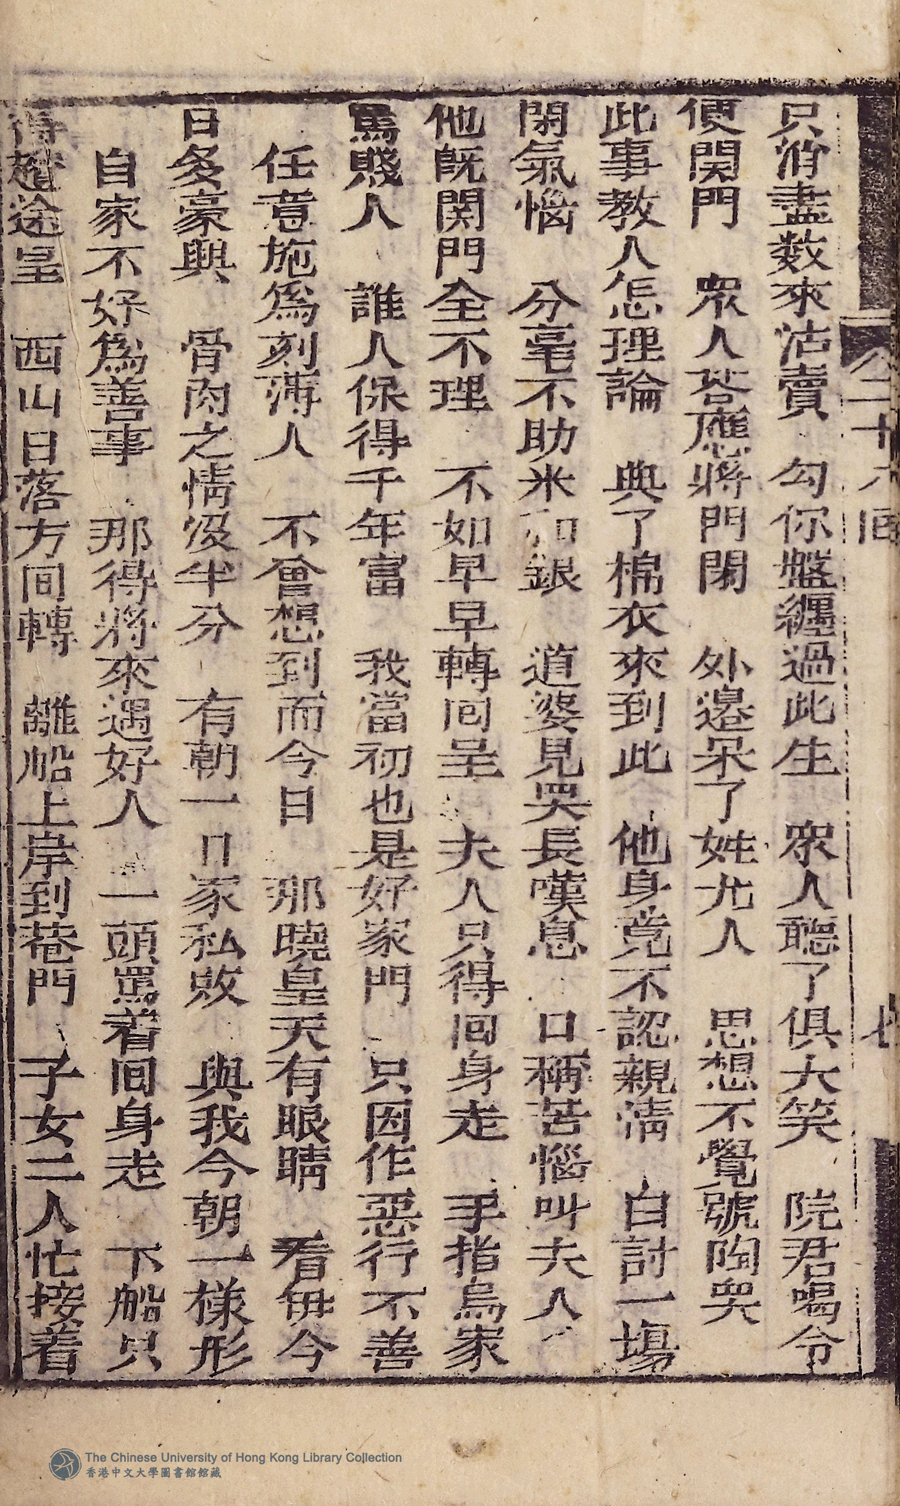 卷二十六回
七
只消盡数來沽賣 勾你盤纏過此生 眾人聽了俱大笑 院君喝令
便関門 眾人荅應將門閉 外邉呆了姓尤人 思想不覺號啕哭
此事教人怎理論 典了棉衣來到此 他身竟不認親情 白討一塲
閑氣惱 分毫不助米和銀 道婆見哭長嘆息 口稱苦惱叫夫人
他既関門全不理 不如早早轉囘呈 夫人只得囘身走 手指烏家
罵賤人 誰人保得千年富 我當初也是好家門 只因作惡行不善
任意施爲刻薄人 不曾想到而今日 那曉皇天有眼睛 看伊今
日多豪興 骨肉之情没半分 有朝一日家私敗 與我今朝一樣形
自家不好爲善事 那得將來遇好人 一頭罵着囘身走 下船只
得趱途呈 西山日落方囘轉 離船上岸到菴門 子女二人忙接着
The Chinese University of Hong Kong Library Collection
香港中文大學圖書館館藏